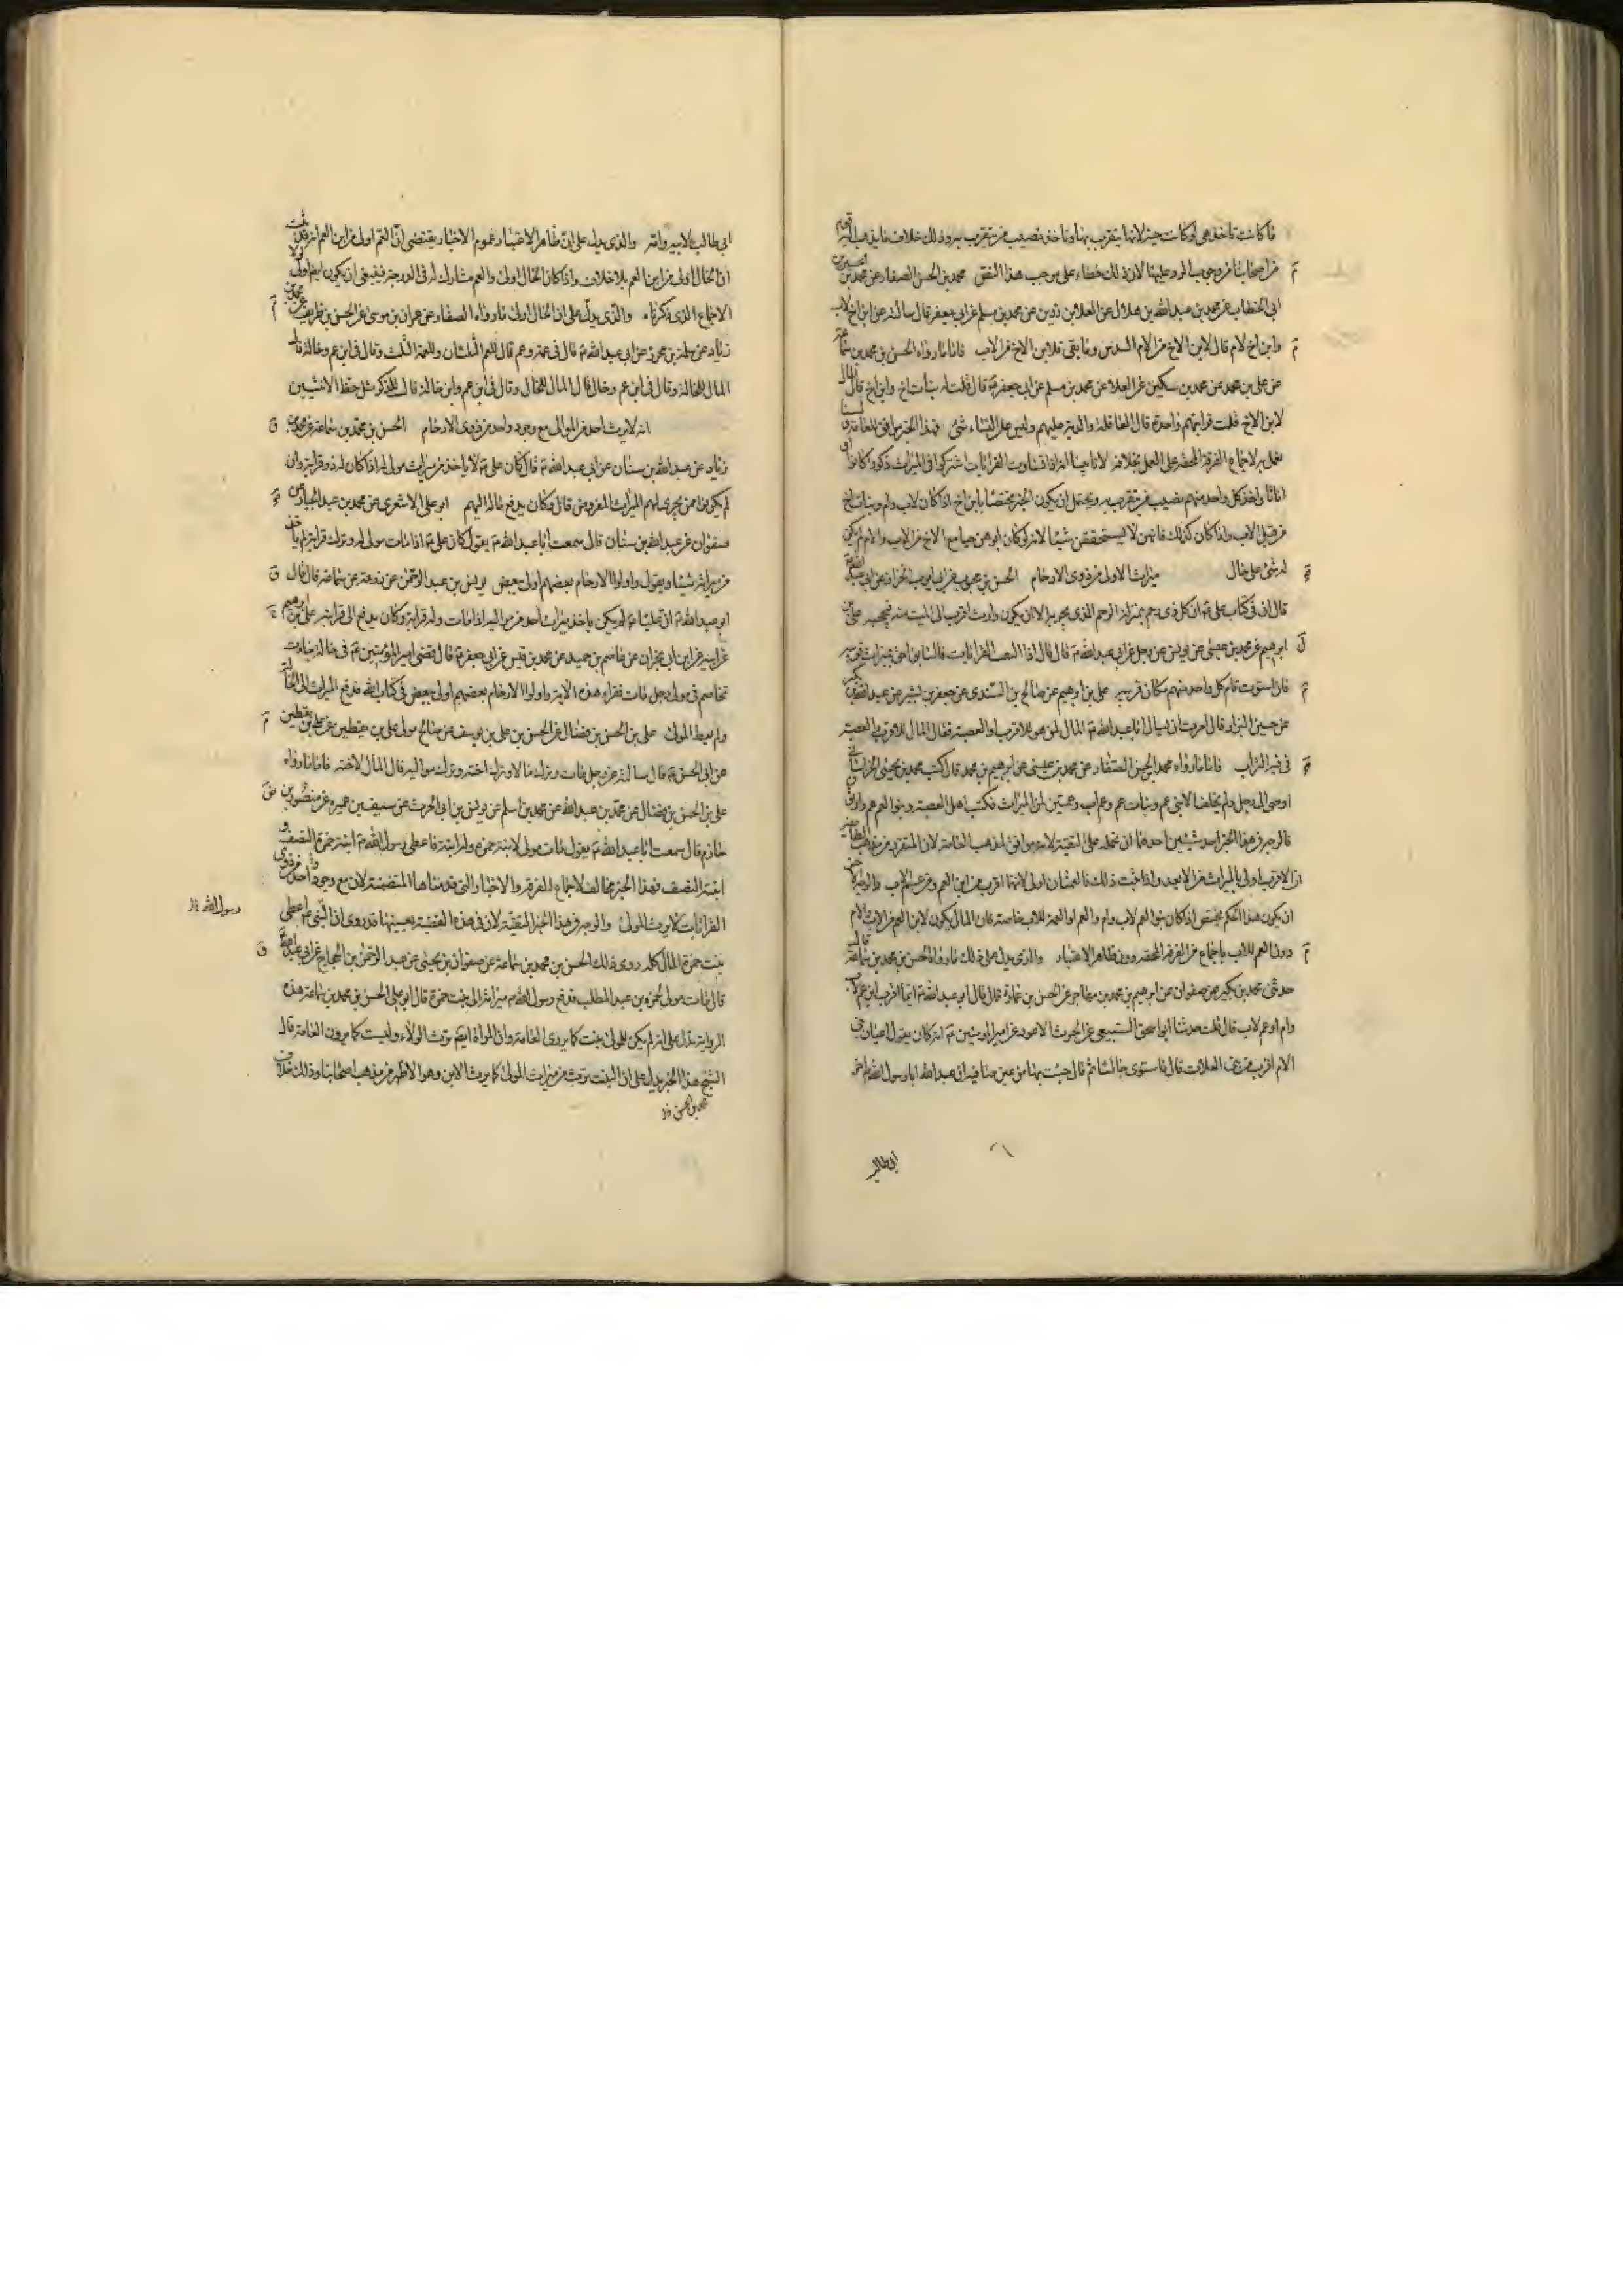 ما كانت تاخذ هي لو كانت حية لانها يتقرب بها وتاخذ نصيب من تتقرب به وذلك خلاف ما يذهب اليه قوم
من اصحابنا من وجوب الرد عليها لان ذلك خطاء على موجب هذا النص محمد بن الحسن الصفار عن محمد بن الحسين بن
ابي الخطاب عن محمد بن عبد الله بن هلال عن العلا بن رزين عن محمد بن مسلم عن ابي جعفر قال سالته عن ابن اخ لاب
وابن اخ لام قال لابن الاخ من الام السدس وما بقى فلابن الاخ من الاب فاما ما رواه الحسن بن محمد بن سماعة
عن علي بن محمد عن محمد بن سكين عن العلا عن محمد بن مسلم عن ابي جعفر ع قال قلت له بنات اخ وابن اخ قال المال
لابن الاخ قلت قرابتهم واحدة قال العاقلة والدية عليهم وليس على النساء شئ فهذا الخبر موافق للعامة لسنا
نعمل به لاجماع الفرقة المحقة على العمل بخلافه لانا بينا انه اذا تساوت القرابات اشتركوا في الميراث ذكورا كانوا او
اناثا واخذ كل واحد منهم نصيب من يتقرب به ويحتمل ان يكون الخبر مختصا بابن اخ اذا كان لاب وام وبنات اخ
من قبل الاب واذا كان كذلك فانهن لا يستحققن شيئا لانه لو كان ابوهن حيا مع الاخ من الاب والام لم يكن
له شئ على حال ميراث الاولى من ذوى الارحام الحسن بن محبوب عن ابي ايوب الخزاز عن ابي عبد الله ع
قال ان في كتاب علي ع ان كل ذى رحم بمنزلة الرحم الذى يجر به الا ان يكون وارث اقرب الى الميت منه فيحجبه علي بن
ابرهيم عن محمد بن عيسى عن يونس عن رجل عن ابي عبد الله ع قال قال اذا التفت القرابات فالسابق احق بميراث قريبه
فان استوت قام كل واحد منهم مكان قريبه علي بن ابرهيم عن صالح بن السندى عن جعفر بن بشير عن عبد الله بن بكير
عن حسين البزاز قال امرت من يسال ابا عبد الله ع المال لمن هو للاقرب او العصبة فقال المال للاقرب والعصبة
في فيه التراب فاما ما رواه محمد بن الحسن الصفار عن محمد بن عيسى عن ابرهيم بن محمد قال كتب محمد بن يحيى الخراساني
اوصى الى رجل ولم يخلف الا بني عم وبنات عم وعم اب وعمتين لمن الميراث فكتب اهل العصبة وبنوا العم هم وارثون
فالوجه في هذا الخبر احد شيئين احدهما ان نحمله على التقية لانه موافق لمذهب العامة لان المتقرر من مذهب الطائفة
ان الاقرب اولى بالميراث من الابعد واذا ثبت ذلك فالعمتان اولى لانهما اقرب من ابن العم ومن عم الاب والوجه الاخر
ان يكون هذا الحكم يختص اذا كان بنو العم لاب وام والعم او العمة للاب خاصة فان المال يكون لابن العم من الاب والام
دون العم للاب باجماع من الفرقة المحقه دون ظاهر الاعتبار والذى يدل على ذلك ما رواه الحسن بن محمد بن سماعة قال
حدثني محمد بن بكير عن صفوان عن ابرهيم بن محمد بن مهاجر عن الحسن بن عمارة قال قال ابو عبد الله ع ايما اقرب ابن عم لاب
وام او عم لاب قال قلت حدثنا ابو اسحق السبيعي عن الحرث الاعور عن امير المومنين ع انه كان يقول اعيان بني
الام اقرب من بني العلات قال فاستوى جالسا ثم قال جئت بها من عين صافية ان عبد الله ابا رسول الله ص اخو
ابي طالب
ابي طالب لابيه وامه والذى يدل على ان ظاهر الاعتبار وعموم الاخبار يقتضى ان العم اولى من ابن العم انه قد ثبت
ان الخال اولى من ابن العم بلا خلاف واذا كان الخال اولى والعم مشارك له في الدرجة فينبغي ان يكون ايضا اولى لولا
الاجماع الذى ذكرناه والذى يدل على ان الخال اولى ما رواه الصفار عن عمران بن موسى عن الحسن بن ظريف عن محمد بن
زياد عن سلمة بن محرز عن ابي عبد الله ع قال في عمة وعم قال للعم الثلثان وللعمة الثلث وقال في ابن عم وخالة قال
المال للخالة وقال في ابن عم وخال قال المال للخال وقال في ابن عم وابن خالة قال للذكر مثل حظ الانثيين
انه لا يرث احد من الموالى مع وجود واحد من ذوى الارحام الحسن بن محمد بن سماعة عن محمد بن
زياد عن عبد الله بن سنان عن ابي عبد الله ع قال كان علي ع لا ياخذ من ميراث مولى له اذا كان له ذو قرابة وان
لم يكونوا ممن يجرى لهم الميراث المفروض قال وكان يدفع ماله اليهم ابو علي الاشعرى عن محمد بن عبد الجبار عن
صفوان عن عبد الله بن سنان قال سمعت ابا عبد الله ع يقول كان علي ع اذا مات مولى له وترك قرابة لم ياخذ
من ميراثه شيئا ويقول واولوا الارحام بعضهم اولى ببعض يونس بن عبد الرحمن عن زرعة عن سماعة قال قال
ابو عبد الله ع ان عليا ع لم يكن ياخذ ميراث احد من مواليه اذا مات وله قرابة وكان يدفع الى قرابته علي بن ابرهيم
عن ابيه عن ابن ابي نجران عن عاصم بن حميد عن محمد بن قيس عن ابي جعفر ع قال قضى امير المؤمنين ع في خالة جاءت
تخاصم في مولى رجل مات فقراء هذه الاية واولوا الارحام بعضهم اولى ببعض في كتاب الله فدفع الميراث الى الخالة
ولم يعط المولى علي بن الحسن بن فضال عن الحسن بن علي بن يوسف عن صالح مولى علي بن يقطين عن علي بن يقطين
عن ابي الحسن ع قال سالته عن رجل مات وترك مالا وترك اخته وترك مواليه قال المال لاخته فاما ما رواه
علي بن الحسن بن فضال عن محمد بن عبد الله عن محمد بن اسلم عن يونس بن ابي الحرث عن سيف بن عميرة عن منصور بن
حازم قال سمعت ابا عبد الله ع يقول مات مولى لابنة حمزه وله ابنة فاعطى رسول الله ص ابنة حمزة النصف و
ابنته النصف فهذا الخبر مخالف لاجماع الفرقة والاخبار التي قدمناها المتضمنة لان مع وجود احد من ذوى
القرابات لا يرث المولى والوجه في هذا الخبر التقية لان في هذه القضية بعينها قد روى ان النبي ص اعطى
رسول الله
بنت حمزة المال كله روى ذلك الحسن بن محمد بن سماعة عن صفوان بن يحيى عن عبد الرحمن بن الحجاج عن ابي عبد الله ع
قال مات مولى لحمزه بن عبد المطلب فدفع رسول الله ص ميراثه الى بنت حمزة قال ابو علي الحسن بن محمد بن سماعة هذه
الرواية تدل على انه لم يكن للمولى بنت كما يروى العامة وان المراة ايضا ترث الولاء وليست كما يروون العامة قال
الشيخ هذا الخبر يدل على ان البنت ترث من ميراث المولى كما يرث الابن وهو الاظهر من مذهب اصحابنا وذلك خلاف
محمد بن الحسن